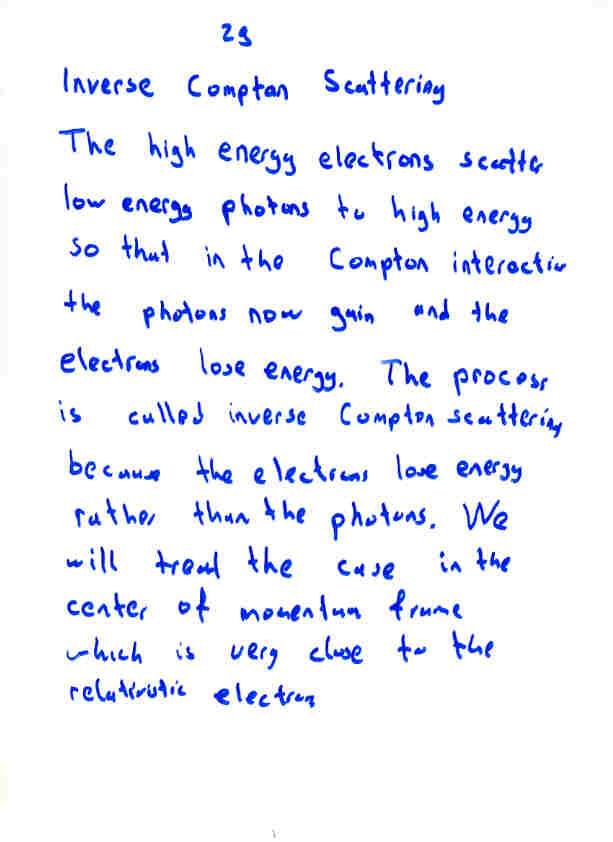 29
Inverse Compton Scattering
The high energy electrons scatter
low energy photons to high energy
so that in the Compton interaction
the photons now gain and the
electrons lose energy. The process
is called inverse Compton scattering
because the electrons lose energy
rather than the photons. We
will treat the case in the
center of momentum frame
which is very close to the
relativistic electron